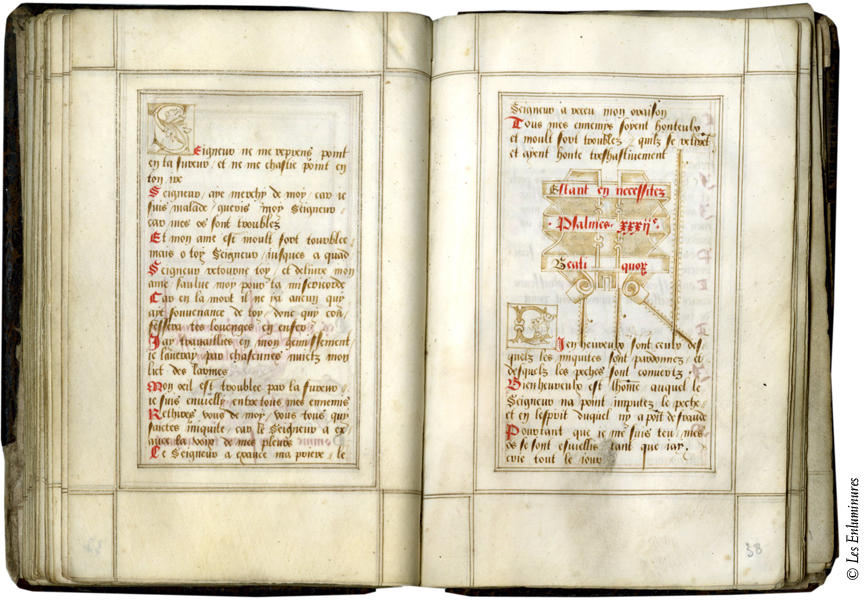 Seigneur ne me reprens point
en ta fureur, et ne me chastie point en
ton ire
Seigneur, aye merchy de moy, car ie
suis malade, gueris moy Seigneur,
car mes os sont troublez
Et mon ame est moult fort troublee,
mais o toy Seigneur, iusques a quad
Seigneur retourne toy, et deliure mon
ame, saulue moy pour ta misericorde
Car en la mort il ne ya aucun quy
aye souuenance de toy, donc quy con=
fessera tes louenges en enfer
Iay trauaillies en mon gemissement,
ie laueray par chascunes nuictz mon
lict des larmes
Mon oeil est troublee par la fureur,
ie suis enuielly entre tous mes ennemis
Rethires vous de moy, vous tous quy
faictes iniquite, car le Seigneur a ex=
auce la voix de mes pleurs
Le Seigneur a exauce ma priere, le
Seigneur a receu mon oraison
Tous mes ennemys soyent honteulx,
et moult fort troublez, quilz se retiret
et ayent honte treshastiuement
Estant en necessitez
Psalmes xxxii
Beati quor
Bien heureulx sont ceulx des=
quelz les iniquites sont pardonnez, et
desquelz les peches sont couuertz.
Bienheureulx est lhome auquel le
Seigneur na point imputez le peche,
et en lesprit duquel ny a poīt de fraude
Pourtant que ie me suis teu, mes
os se sont enuiellis tant que iay
crie tout le iour
38
© Les Enluminures